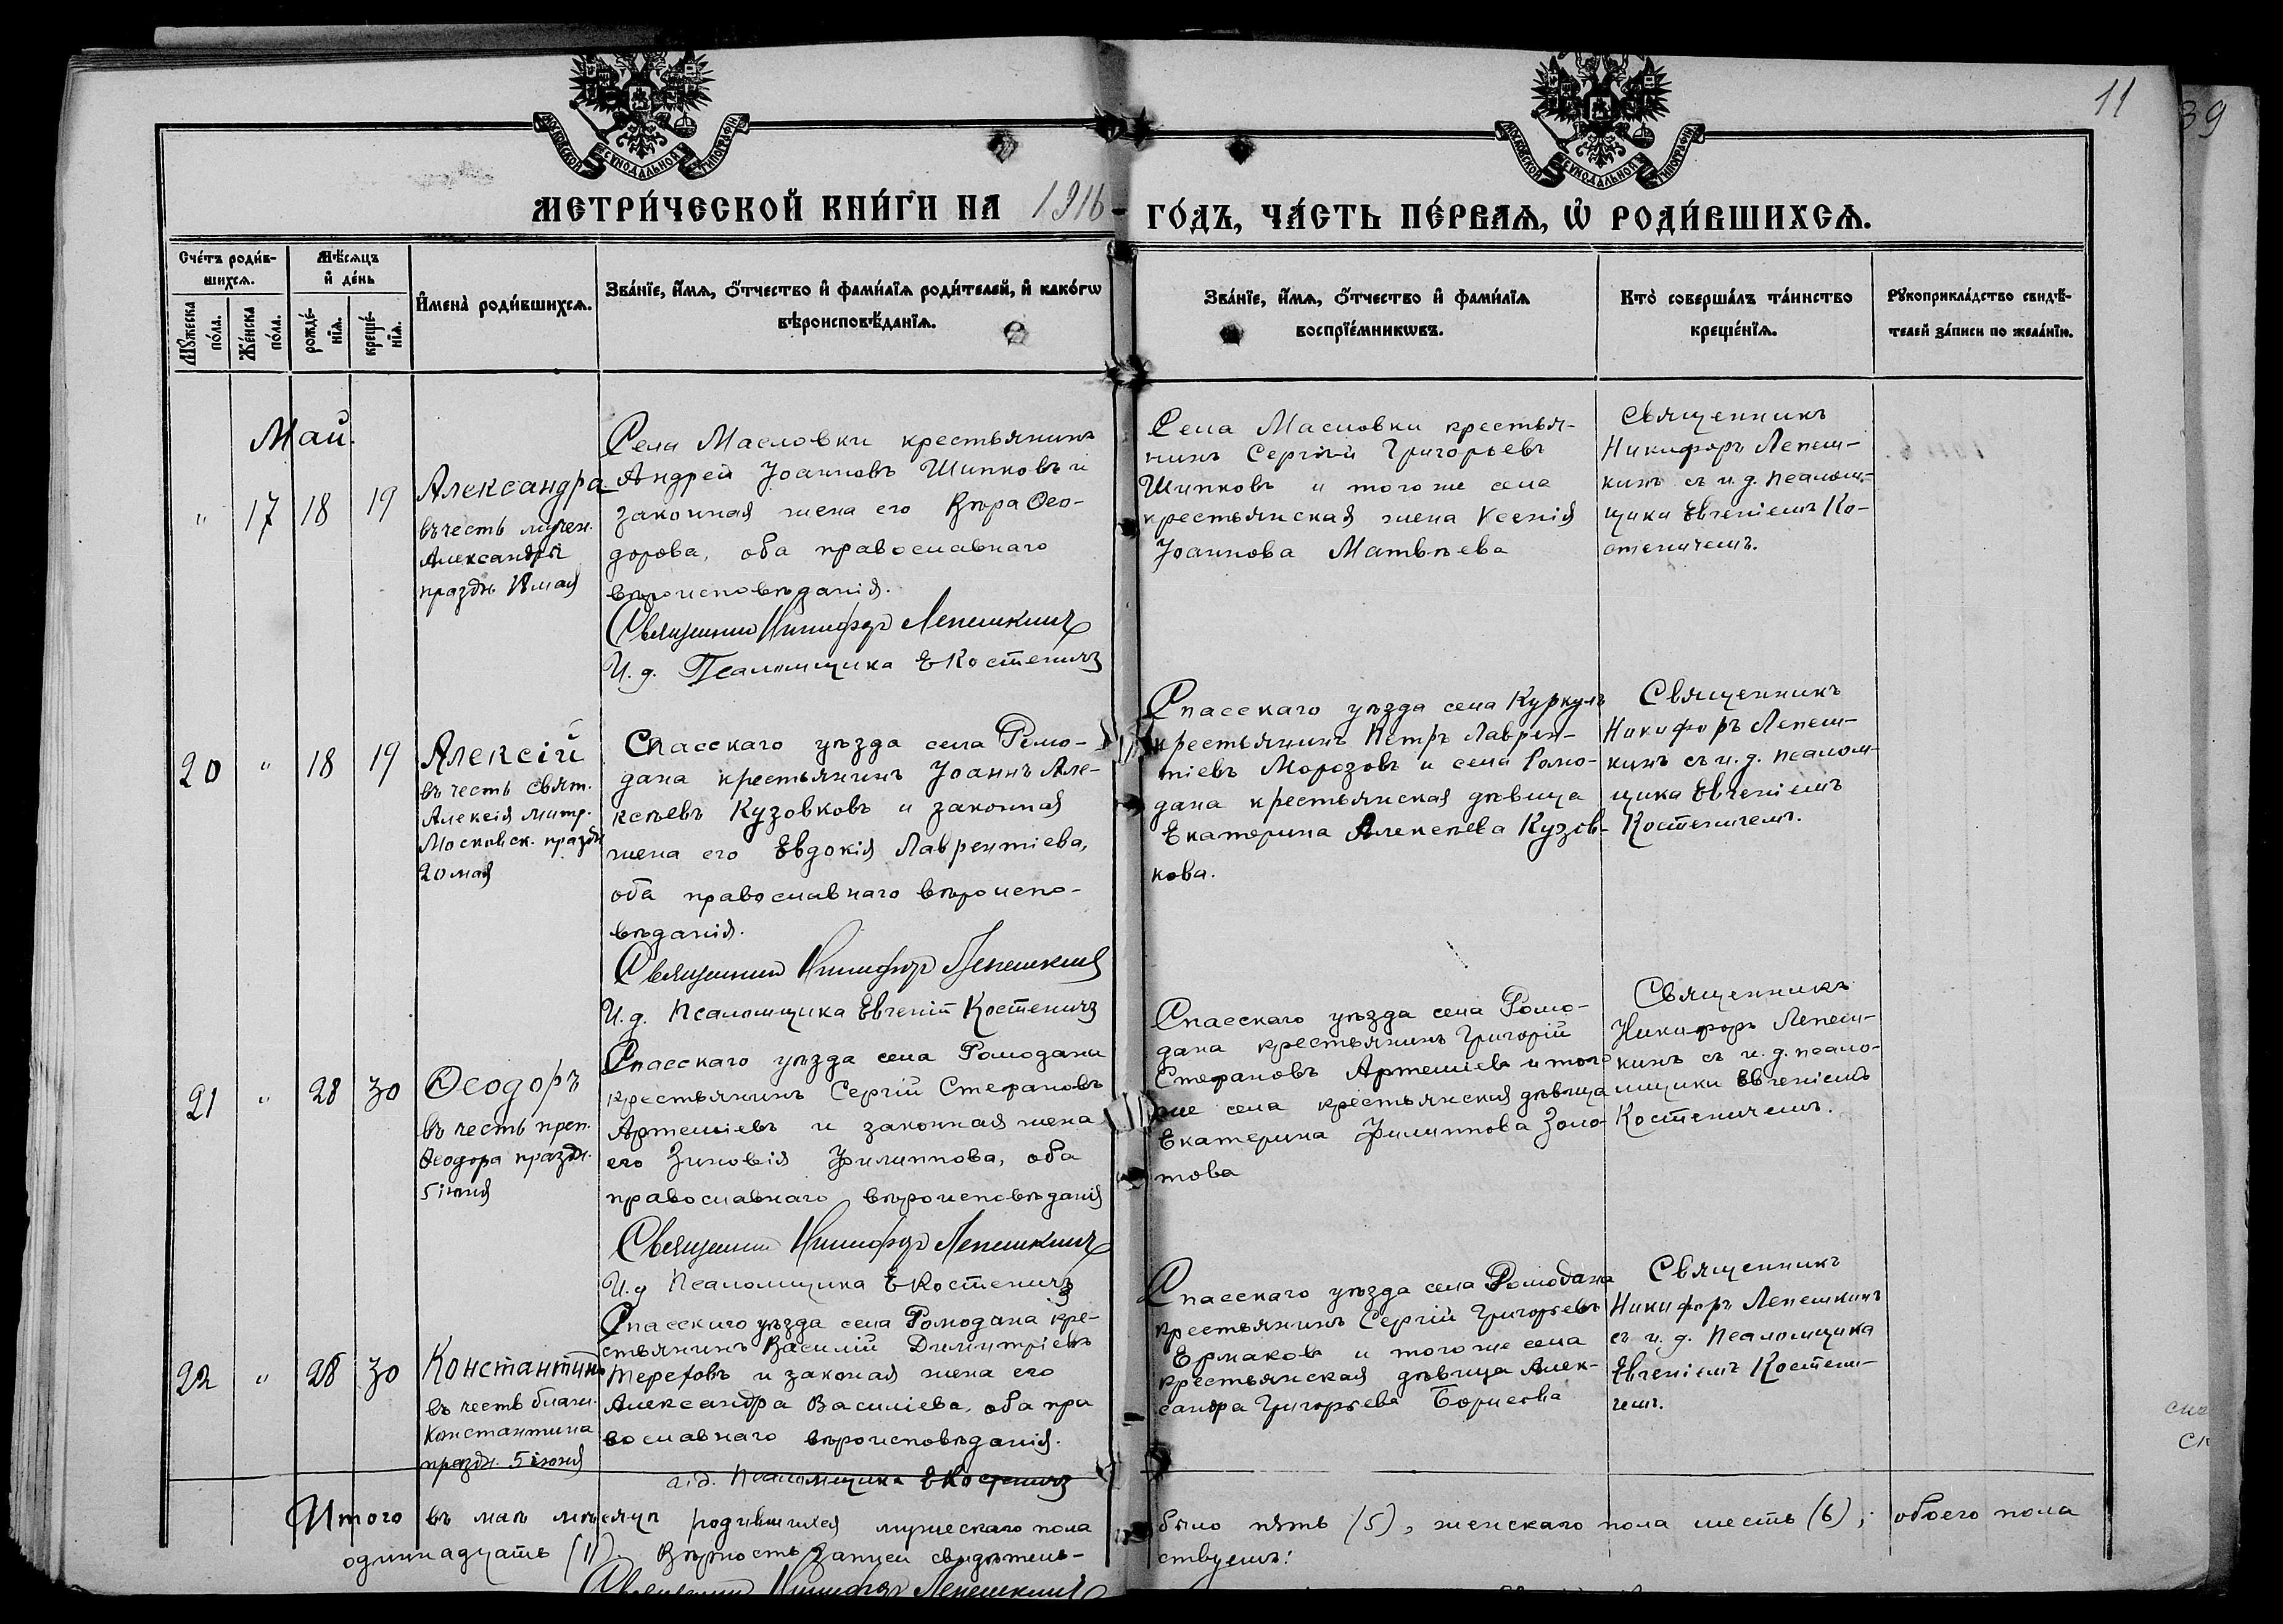 11
39
МОСКОВСКОЙ СѴНОДАЛЬНОЙ ТИПОГРАФІИ
МОСКОВСКОЙ СѴНОДАЛЬНОЙ ТИПОГРАФІИ
МЕТРИ́ЧЕСКОЙ КНИ́ГИ НА 1916
ГО́ДЪ, ЧА́СТЬ ПЕ́РВАѦ, Ѡ҆ РОДИ́ВШИХСѦ.
Сче́тъ роди́в-
шихсѧ.
Мꙋ́жеска по́ла.
Же́нска по́ла.
Мѣ́сѧцъ
и҆ де́нь
рожде́-
нїѧ.
креще́-
нїѧ.
И҆мена̀ роди́вшихсѧ.
Зва́нїе, и҆́мѧ, ѻ҆́тчество и҆ фами́лїѧ роди́телей, и҆ како́гѡ
вѣроисповѣ́данїѧ.
Зва́нїе, и҆́мѧ, ѻ҆́тчество и҆ фами́лїѧ
воспрїе́мникѡвъ.
Кто̀ соверша́лъ та́инство
креще́нїѧ.
Рꙋкоприкла́дство свидѣ́-
телей за́писи по жела́нїю.
Май.
" 17 18 19
Александра
въ честь мучен.
Александры
праздн. 18 мая
Села Масловки крестьянинъ
Андрей Іоанновъ Шипковъ и
законная жена его Вѣра Ѳео-
дорова, оба православнаго
вѣроисповѣданія.
Священник Никифор Лепешкинъ
И.д. Псаломщика Е Костеничъ
Села Масловки крестья-
нинъ Сергѣй Григорьевъ
Шипковъ и того же села
крестьянская жена Ксенія
Іоаннова Матвѣева
Священникъ
Никифоръ Лепеш-
кинъ съ и.д. псалом-
щика Евгеніемъ Ко-
стеничемъ.
20 " 18 19
Алексій
въ честь свят.
Алексія митр.
Московск. праздн
20 мая
Спасскаго уѣзда села Ромо-
дана крестьянинъ Іоаннъ Але-
ксѣевъ Кузовковъ и законная
жена его Евдокія Лаврентіева,
оба православнаго вѣроиспо-
вѣданія.
Священник Никифор Лепешкинъ
И.д. Псаломщика Евгеній Костеничъ
Спасскаго уѣзда села Куркулъ
крестьянинъ Петръ Лаврен-
тіевъ Морозовъ и села Ромо-
дана крестьянская дѣвица
Екатерина Алексѣева Кузов-
кова.
Священникъ
Никифоръ Лепеш-
кинъ съ и.д. псалом-
щика Евгеніемъ
Костеничемъ.
21 " 28 30
Ѳеодоръ
въ честь преп.
Ѳеодора праздн.
5 іюня
Спасскаго уѣзда села Ромодана
крестьянинъ Сергій Стефановъ
Артеміевъ и законная жена
его Зиновія Филиппова, оба
православнаго вѣроисповѣданія
Священник Никифор Лепешкинъ
И.д Псаломщика Е Костеничъ
Спасскаго уѣзда села Ромо-
дана крестьянинъ Григорій
Стефановъ Артеміевъ и того
же села крестьянская дѣвица
Екатерина Филиппова Золо-
това
Священникъ
Никифоръ Лепеш-
кинъ съ и.д. псало-
мщика Евгеніемъ
Костеничемъ.
22 " 28 30
Константинъ
въ честь благов.
Константина
праздн. 5 іюня
Спасскаго уѣзда села Ромодана кре-
стьянинъ Василій Димитріевъ
Тереховъ и законая жена его
Александра Василіева, оба пра
вославнаго вѣроисповѣданія.
и.д. Псаломщика Е Костеничъ
Спасскаго уѣзда села Ромодана
крестьянинъ Сергій Григорьевъ
Ермаковъ и того же села
крестьянская дѣвица Алек-
сандра Григорьева Борисова
Священникъ
Никифоръ Лепешкинъ
съ и.д. Псаломщика
Евгеніемъ Костени-
чемъ.
Итого въ маѣ мѣсяцѣ родившихся мужескаго пола было пять (5), женскаго пола шесть (6), обоего пола
одиннадцать (11). Вѣрность записи свидѣтель-
ствуемъ:
Священник Никифор Лепешкинъ